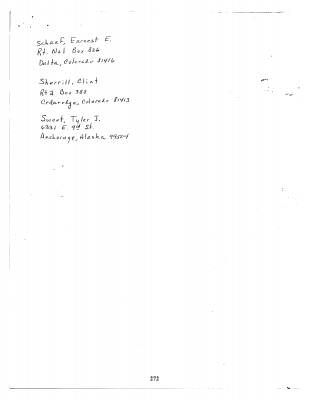 Schaef, Earnest E.
Rt. No1 Box 826
Delta, Colorado 81416
Sherrill, Clint
Rt 2 Box 388
Cedaredge, Colorado 81413
Sweet, Tyler J.
6331 E. 9th St.
Anchorage, Alaska 99504
272